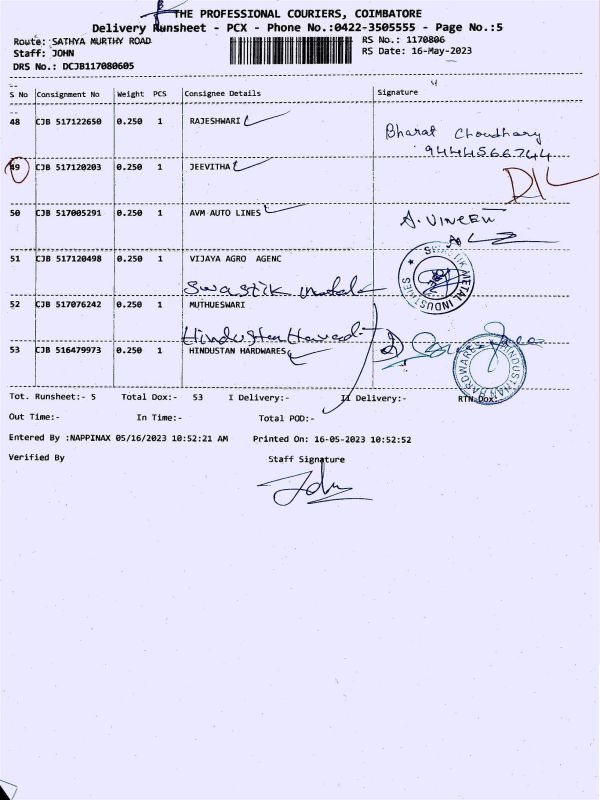 THE PROFESSIONAL COURIERS, COIMBATORE
Delivery Runsheet - PCX - Phone No.:0422-3505555 - Page No.:5
Route: SATHYA MURTHY ROAD
Staff: JOHN
DRS No.: DCJB117080605
RS No.: 1170806
RS Date: 16-May-2023
S No Consignment No Weight PCS Consignee Details Signature
48 CJB 517122650 0.250 1 RAJESHWARI
Bharat Choudhary
9444566744
49 CJB 517120203 0.250 1 JEEVITHA
50 CJB 517005291 0.250 1 AVM AUTO LINES
A. VINEEN
51 CJB 517120498 0.250 1 VIJAYA AGRO AGENC
Swastik
SWASTIK METAL INDUSTRIES
52 CJB 517076242 0.250 1 MUTHUESWARI
Hindusthan
53 CJB 516479973 0.250 1 HINDUSTAN HARDWARES
HINDUSTHAN HARDWARES
Tot. Runsheet:- 5 Total Dox:- 53 I Delivery:- II Delivery:- RTN Dox:-
Out Time:- In Time:- Total POD:-
Entered By :NAPPINAX 05/16/2023 10:52:21 AM Printed On: 16-05-2023 10:52:52
Verified By Staff Signature
John